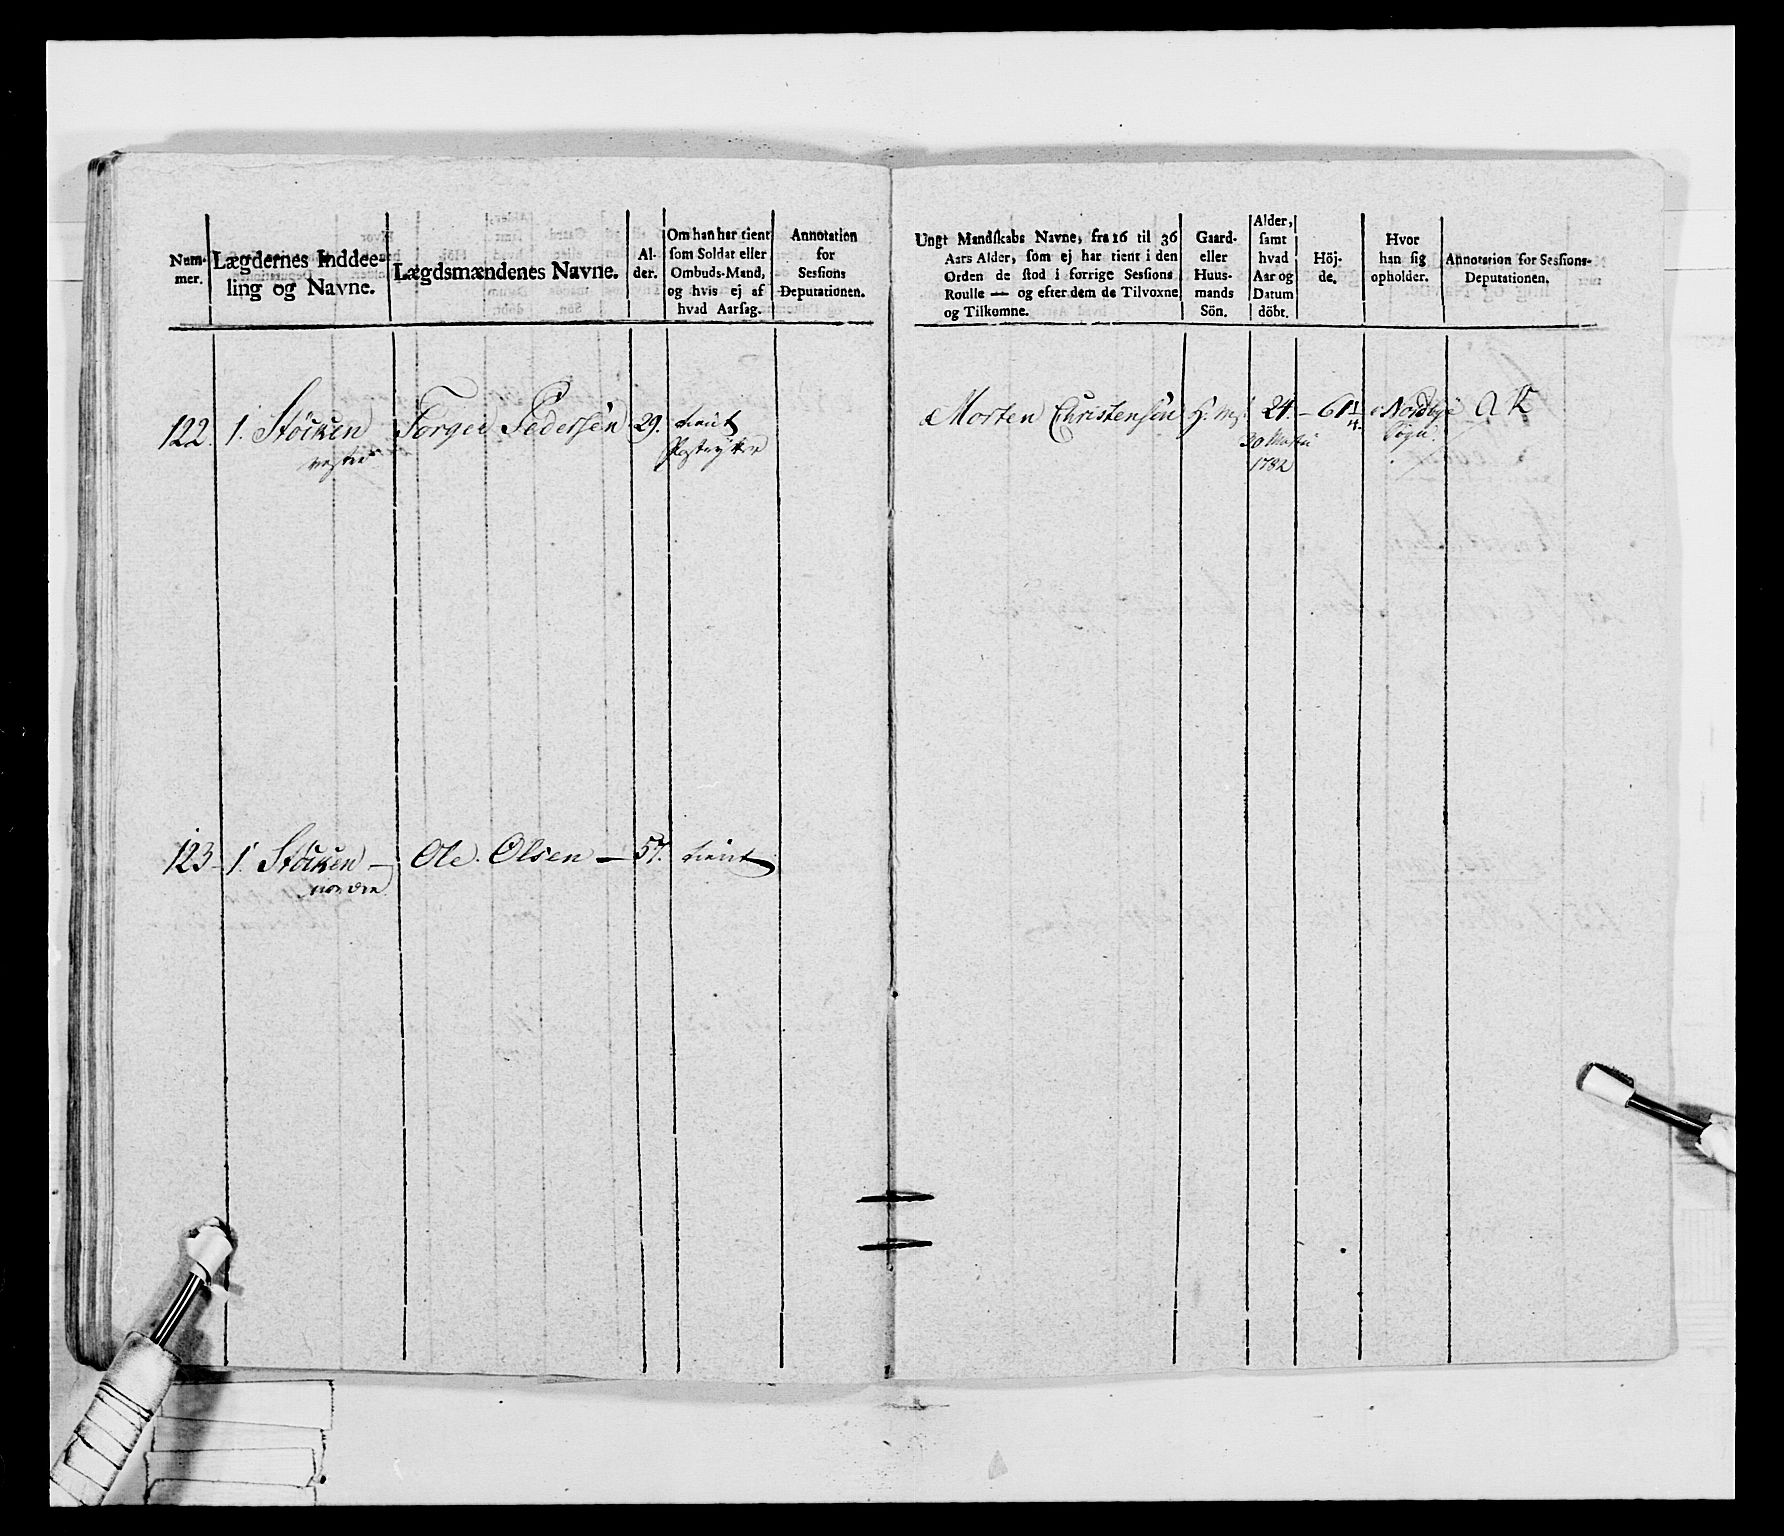 Num-
mer.
Lægdernes Inddee-
ling og Navne.
Lægdsmændenes Navne.
Al-
der.
Om han har tient
som Soldat eller
Ombuds-Mand,
og hvis ej af
hvad Aarsag.
Annotation
for
Sessions
Deputationen.
Ungt Mandskabs Navne, fra 16 til 36
Aars Alder, som ej har tient i den
Orden de stod i forrige Sessions
Roulle — og efter dem de Tilvoxne
og Tilkomne.
Gaard-
eller
Huus-
mands
Sön.
Alder,
samt
hvad
Aar og
Datum
döbt.
Höj-
de.
Hvor
han sig
opholder.
Annotation for Sessions-
Deputationen.
122. 1. Stöcken Torger Pedersen 29. tient
Morten Christensön 24 – 61 1/4
Sogn
1782
123 – 1. Stöcken – Ole Olsen – 57. tient
nordre